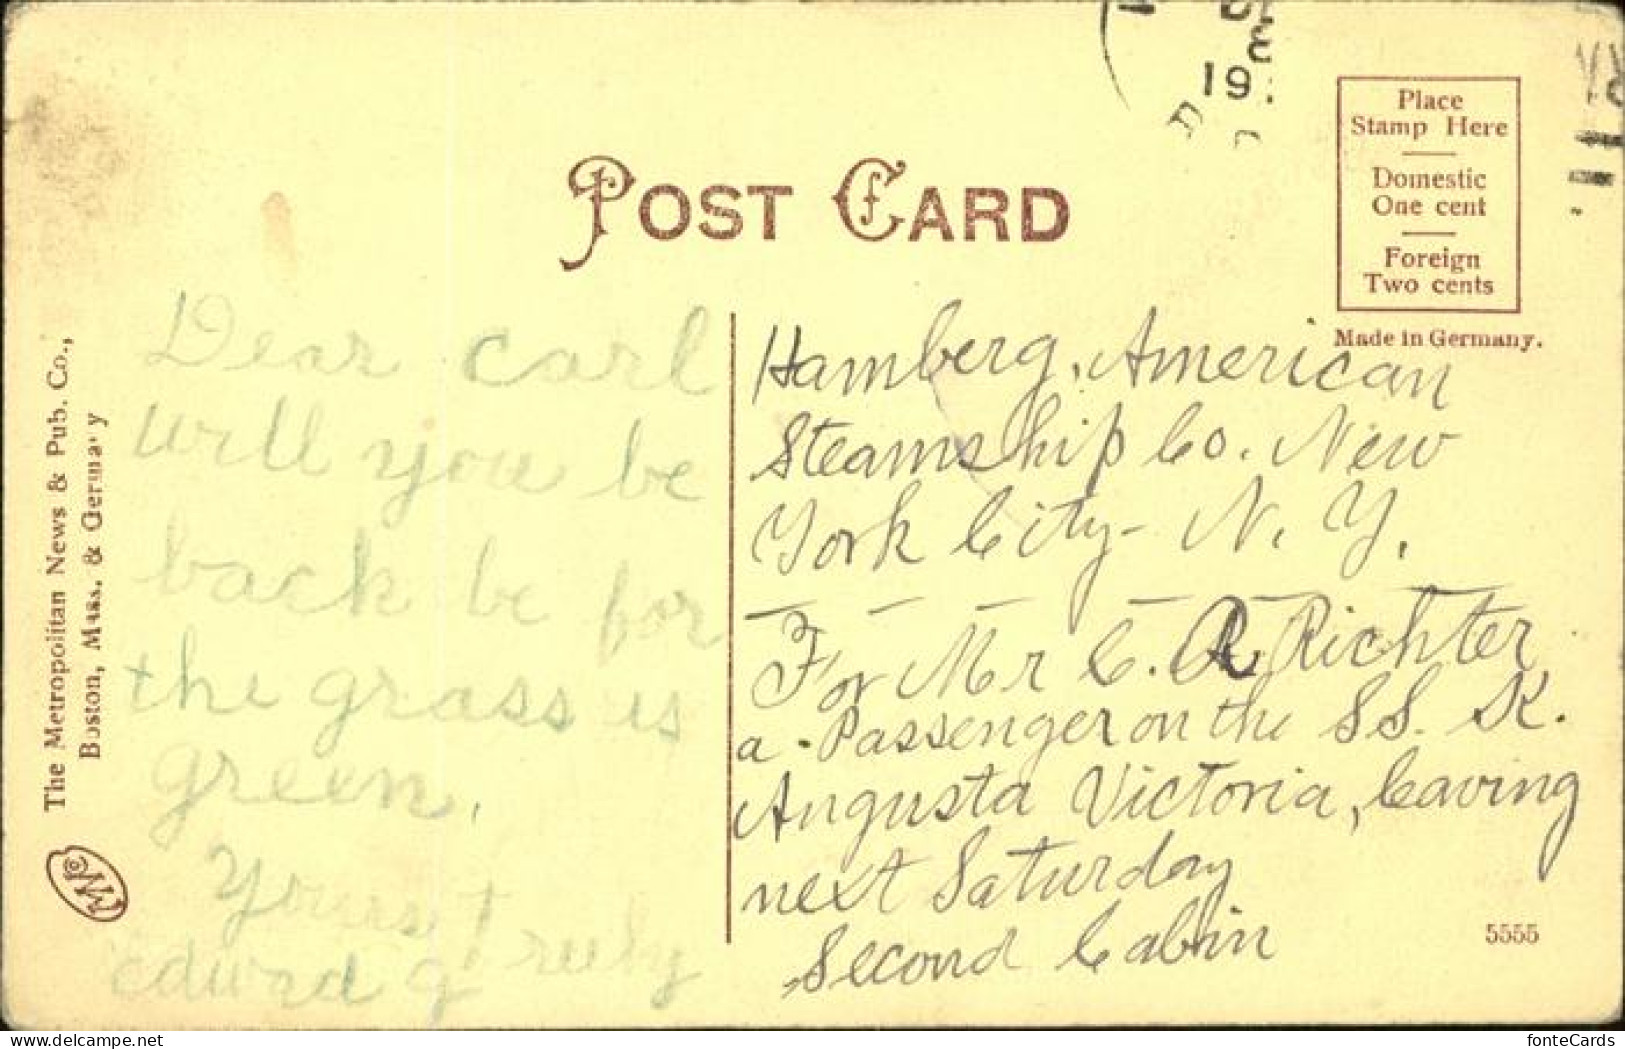 19
POST CARD
Place
Stamp Here
Domestic
One cent
Foreign
Two cents
Made in Germany.
The Metropolitan News & Pub. Co.,
Boston, Mass. & Germany
Dear carl
will you be
back be for
the grass is
green.
Yours Truly
edward g
Hamberg. American
Steamship Co. New
York City - N. Y.
For Mr C. R Richter
a. Passenger on the SS. K.
Augusta Victoria, leaving
next Saturday
Second Cabin
5555
fonteCards
www.delcampe.net